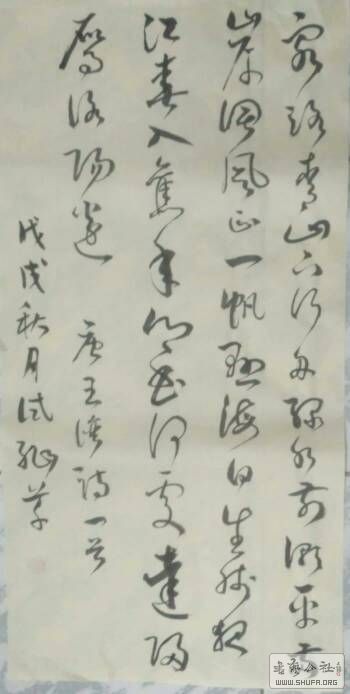 客路青山下行舟绿水前潮平两
岸阔风正一帆悬海日生残夜
江春入舊年乡书何处達归
雁洛阳边 唐王湾诗一首
戊戌秋月试纸草
书艺公社
WWW.SHUFA.ORG